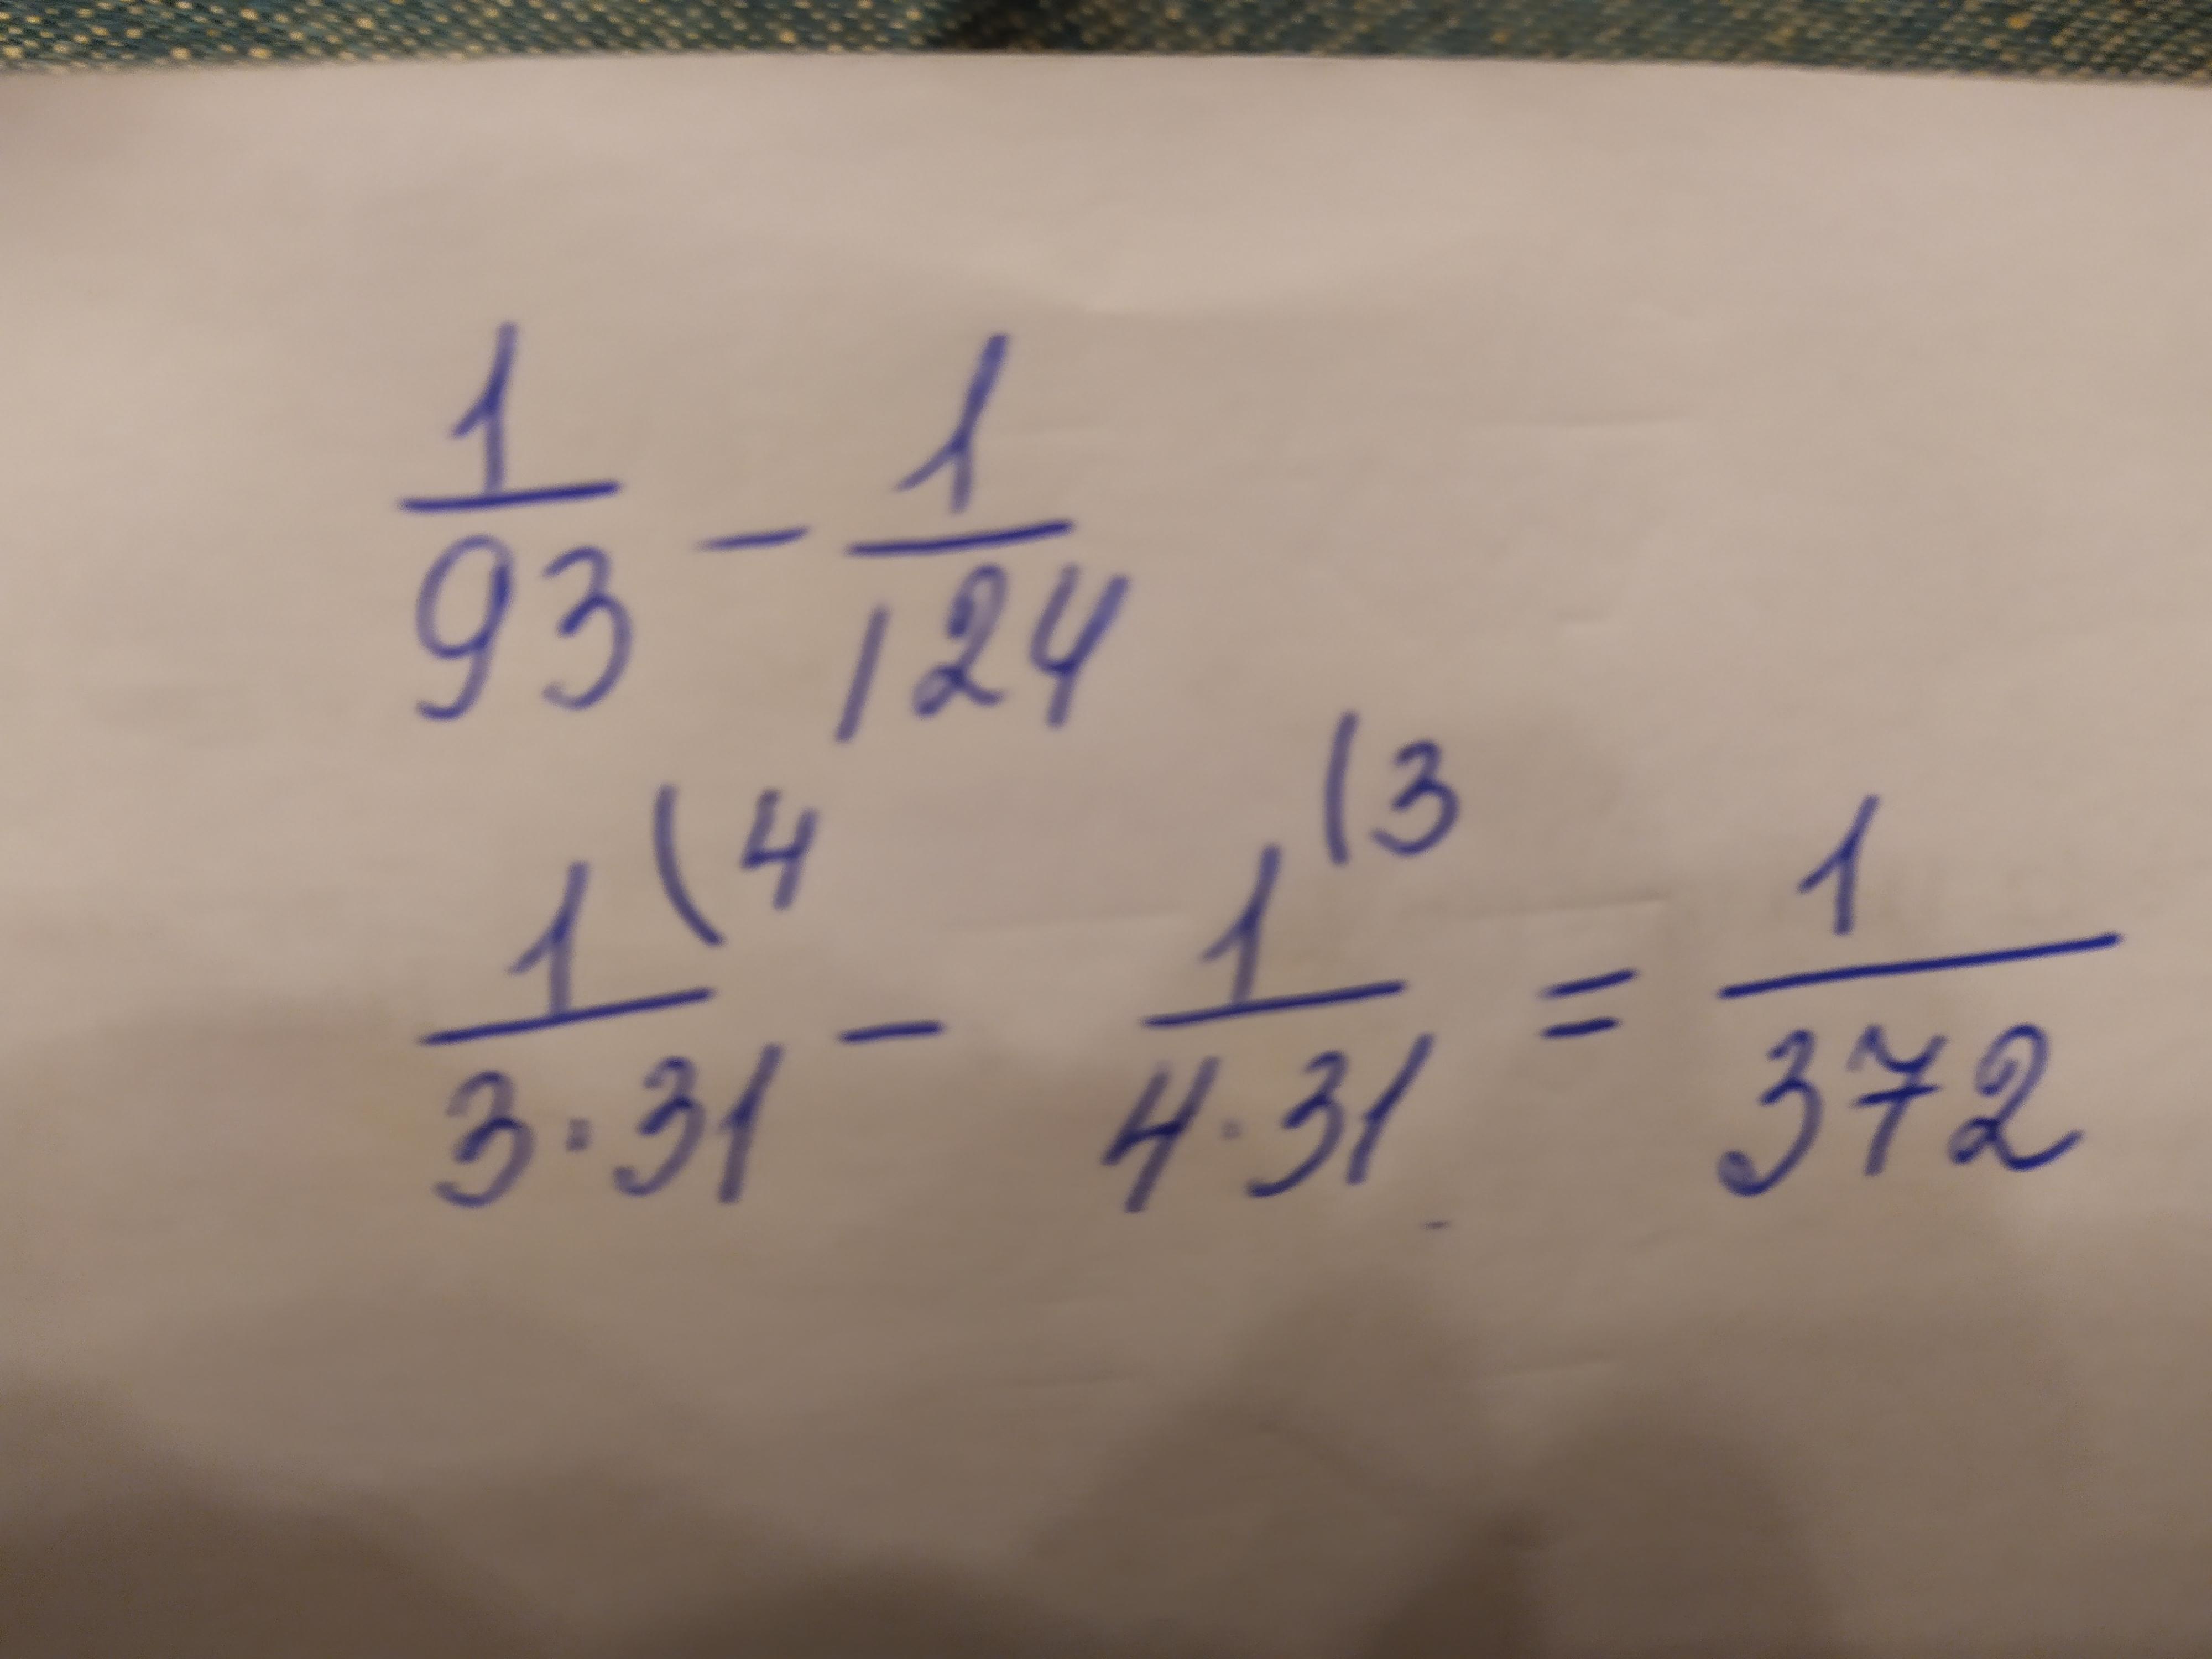 1/93 - 1/124
1/(3·31) (4 - 1/(4·31) (3 = 1/372